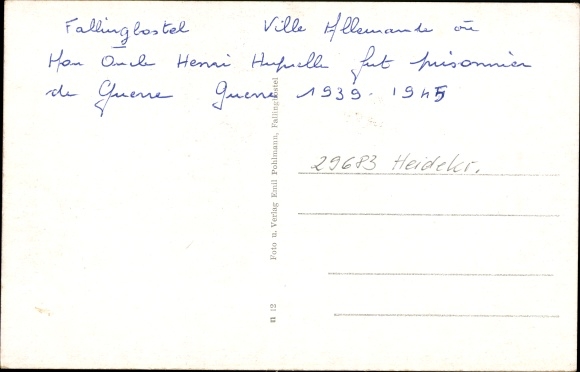 Fallingbostel Ville Allemande où
Mon Oncle Henri fut prisonnier
de Guerre Guerre 1939-1945
29683 Heidekr.
Foto u. Verlag Emil Pohlmann, Fallingbostel